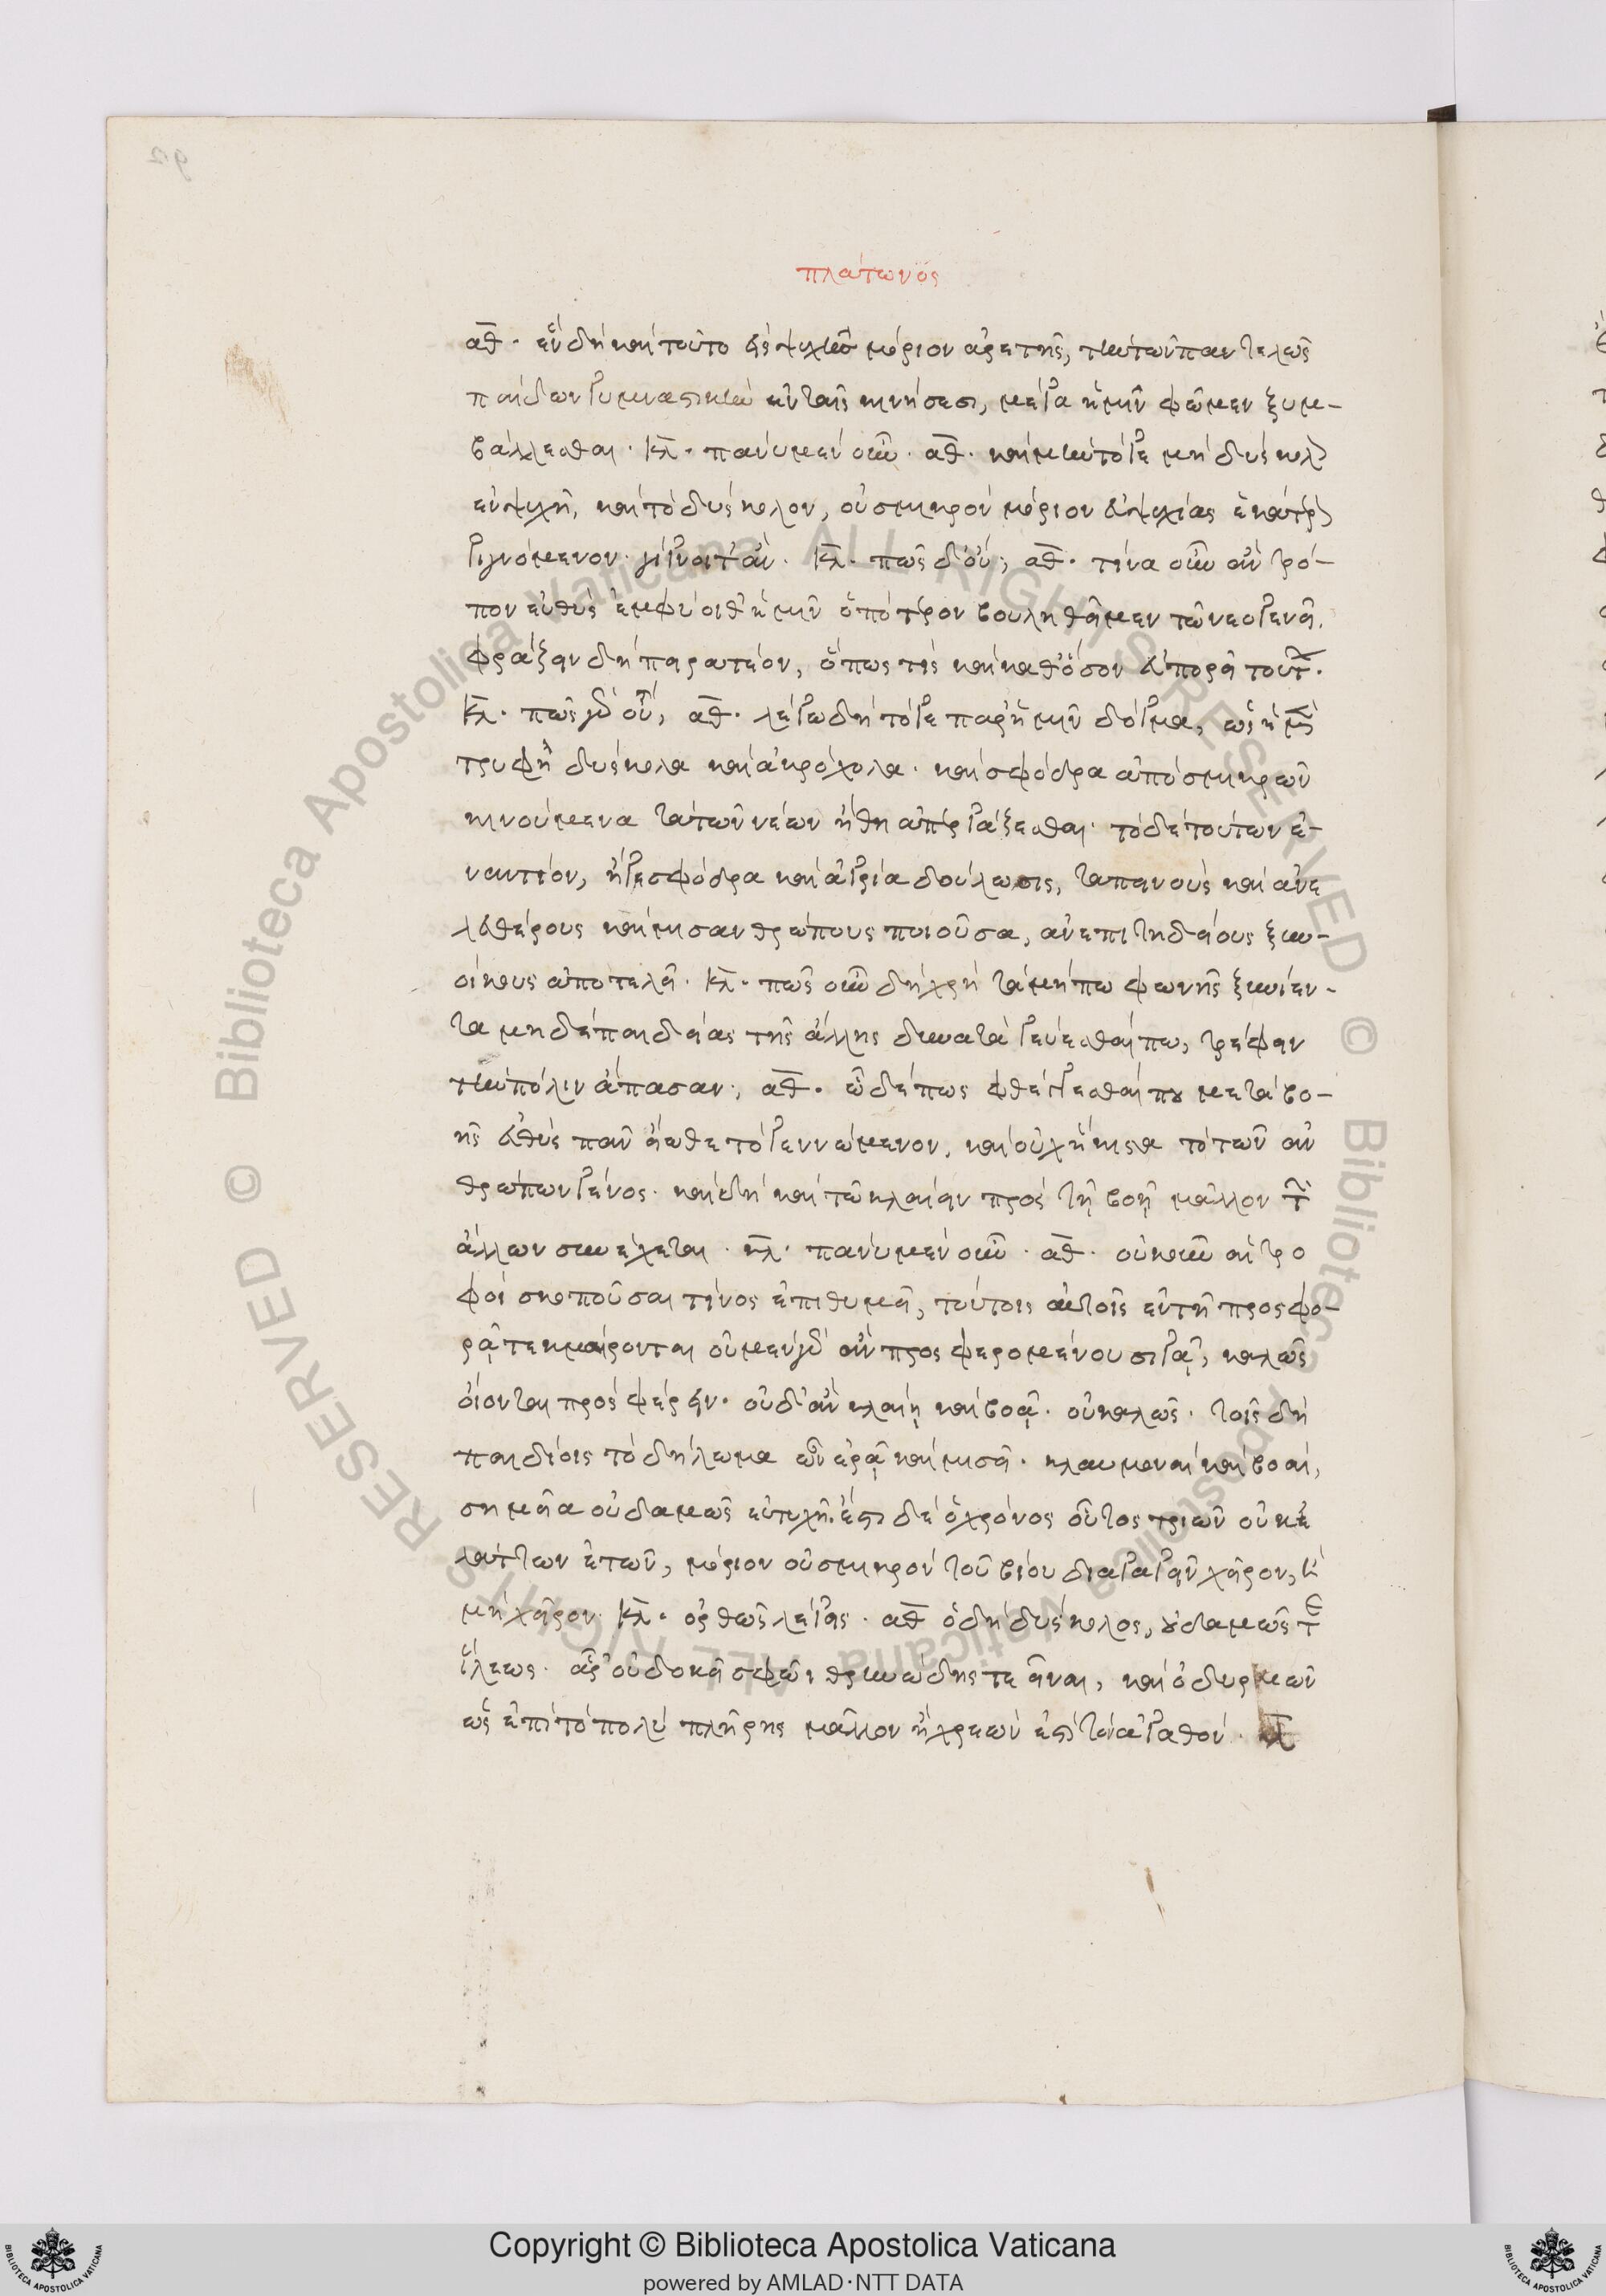 πλάτωνος
αθ. ἓν δὴ καὶ τοῦτο εἰς ψυχῆς μόριον ἀρετῆς, τὴν τῶν παντελῶς
παίδων γυμναστικὴν ἐν ταῖς κινήσεσι, μέγα ἡμῖν φῶμεν ξυμ-
βάλλεσθαι. κλ. πάνυ μὲν οὖν. αθ. καὶ μὴν τό γε μὴ δύσκολον
ἐν ψυχῇ, καὶ τὸ δύσκολον, οὐ σμικρὸν μόριον εὐψυχίας ἑκάτερον
γιγνόμενον γίγνοιτ' ἄν. κλ. πῶς δ' οὔ; αθ. τίνα οὖν ἂν τρό-
πον εὐθὺς ἐμφύοιθ' ἡμῖν ὁπότερον βουληθεῖμεν τῷ νεογενεῖ.
φράζειν δὴ πειρατέον, ὅπως τίς καὶ καθ' ὅσον εὐπορεῖ τούτων.
κλ. πῶς γὰρ οὔ; αθ. λέγω δὴ τό γε παρ' ἡμῖν δόγμα, ὡς ἡ μὲν
τρυφὴ δύσκολα καὶ ἀκρόχολα. καὶ σφόδρα ἀπὸ σμικρῶν
κινούμενα τὰ τῶν νέων ἤθη ἀπεργάζεσθαι. τὸ δὲ τούτων ἐ-
ναντίον, ἥ γε σφόδρα καὶ ἀγρία δούλωσις, ταπεινοὺς καὶ ἀνε
λευθέρους καὶ μισανθρώπους ποιοῦσα, ἀνεπιτηδείους ξυν-
οίκους ἀποτελεῖ. κλ. πῶς οὖν δὴ χρὴ τὰ μήπω φωνῆς ξυνιέν-
τα μηδὲ παιδείας τῆς ἄλλης δυνατὰ γεύεσθαί πω, τρέφειν
τὴν πόλιν ἅπασαν; αθ. ὧδέ πως φθέγγεσθαί που μετὰ βο-
ῆς εὐθὺς πᾶν εἴωθε τὸ γεννώμενον, καὶ οὐχ ἥκιστα τὸ τῶν ἀν
θρώπων γένος. καὶ δὴ καὶ τῷ κλαίειν πρὸς τῇ βοῇ μᾶλλον τῶν
ἄλλων συνέχεται. κλ. πάνυ μὲν οὖν. αθ. οὐκοῦν αἱ τρο
φοὶ σκοποῦσαι τίνος ἐπιθυμεῖ, τούτοις αὐτοῖς ἐν τῇ προσφο-
ρᾷ τεκμαίρονται οὗ μὲν γὰρ ἂν προσφερομένου σιγᾷ, καλῶς
οἴονται προσφέρειν. οὗ δ' ἂν κλαίῃ καὶ βοᾷ. οὐ καλῶς. τοῖς δὴ
παιδίοις τὸ δήλωμα ὧν ἐρᾷ καὶ μισεῖ. κλαυμοναὶ καὶ βοαί,
σημεῖα οὐδαμῶς εὐτυχῆ. ἔστι δὲ ὁ χρόνος οὗτος τριῶν οὐκ ἐ
λάττων ἐτῶν, μόριον οὐ σμικρὸν τοῦ βίου διαγαγεῖν χεῖρον, ἢ
μὴ χεῖρον. κλ. ὀρθῶς λέγεις. αθ ὁ δὴ δύσκολος, οὐδαμῶς τε
ἵλεως. ἆρ' οὐ δοκεῖ σφῶϊ θρηνώδης τε εἶναι, καὶ ὀδυρμῶν
ὡς ἐπὶ τὸ πολὺ πλήρης μᾶλλον ἢ χρεὼν ἐστὶ τὸν ἀγαθόν. κλ
Copyright © Biblioteca Apostolica Vaticana
powered by AMLAD·NTT DATA